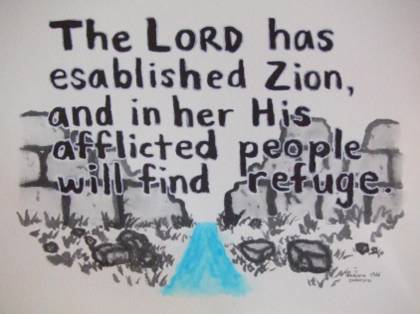 The LORD has
esablished Zion,
and in her His
afflicted people
will find refuge.